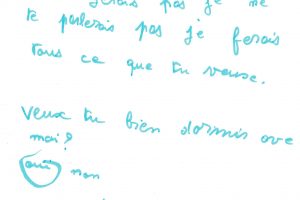 pas je ne
te parlerais pas je ferais
tous ce que tu veuse.
Veux tu bien dormis ove
moi?
oui non